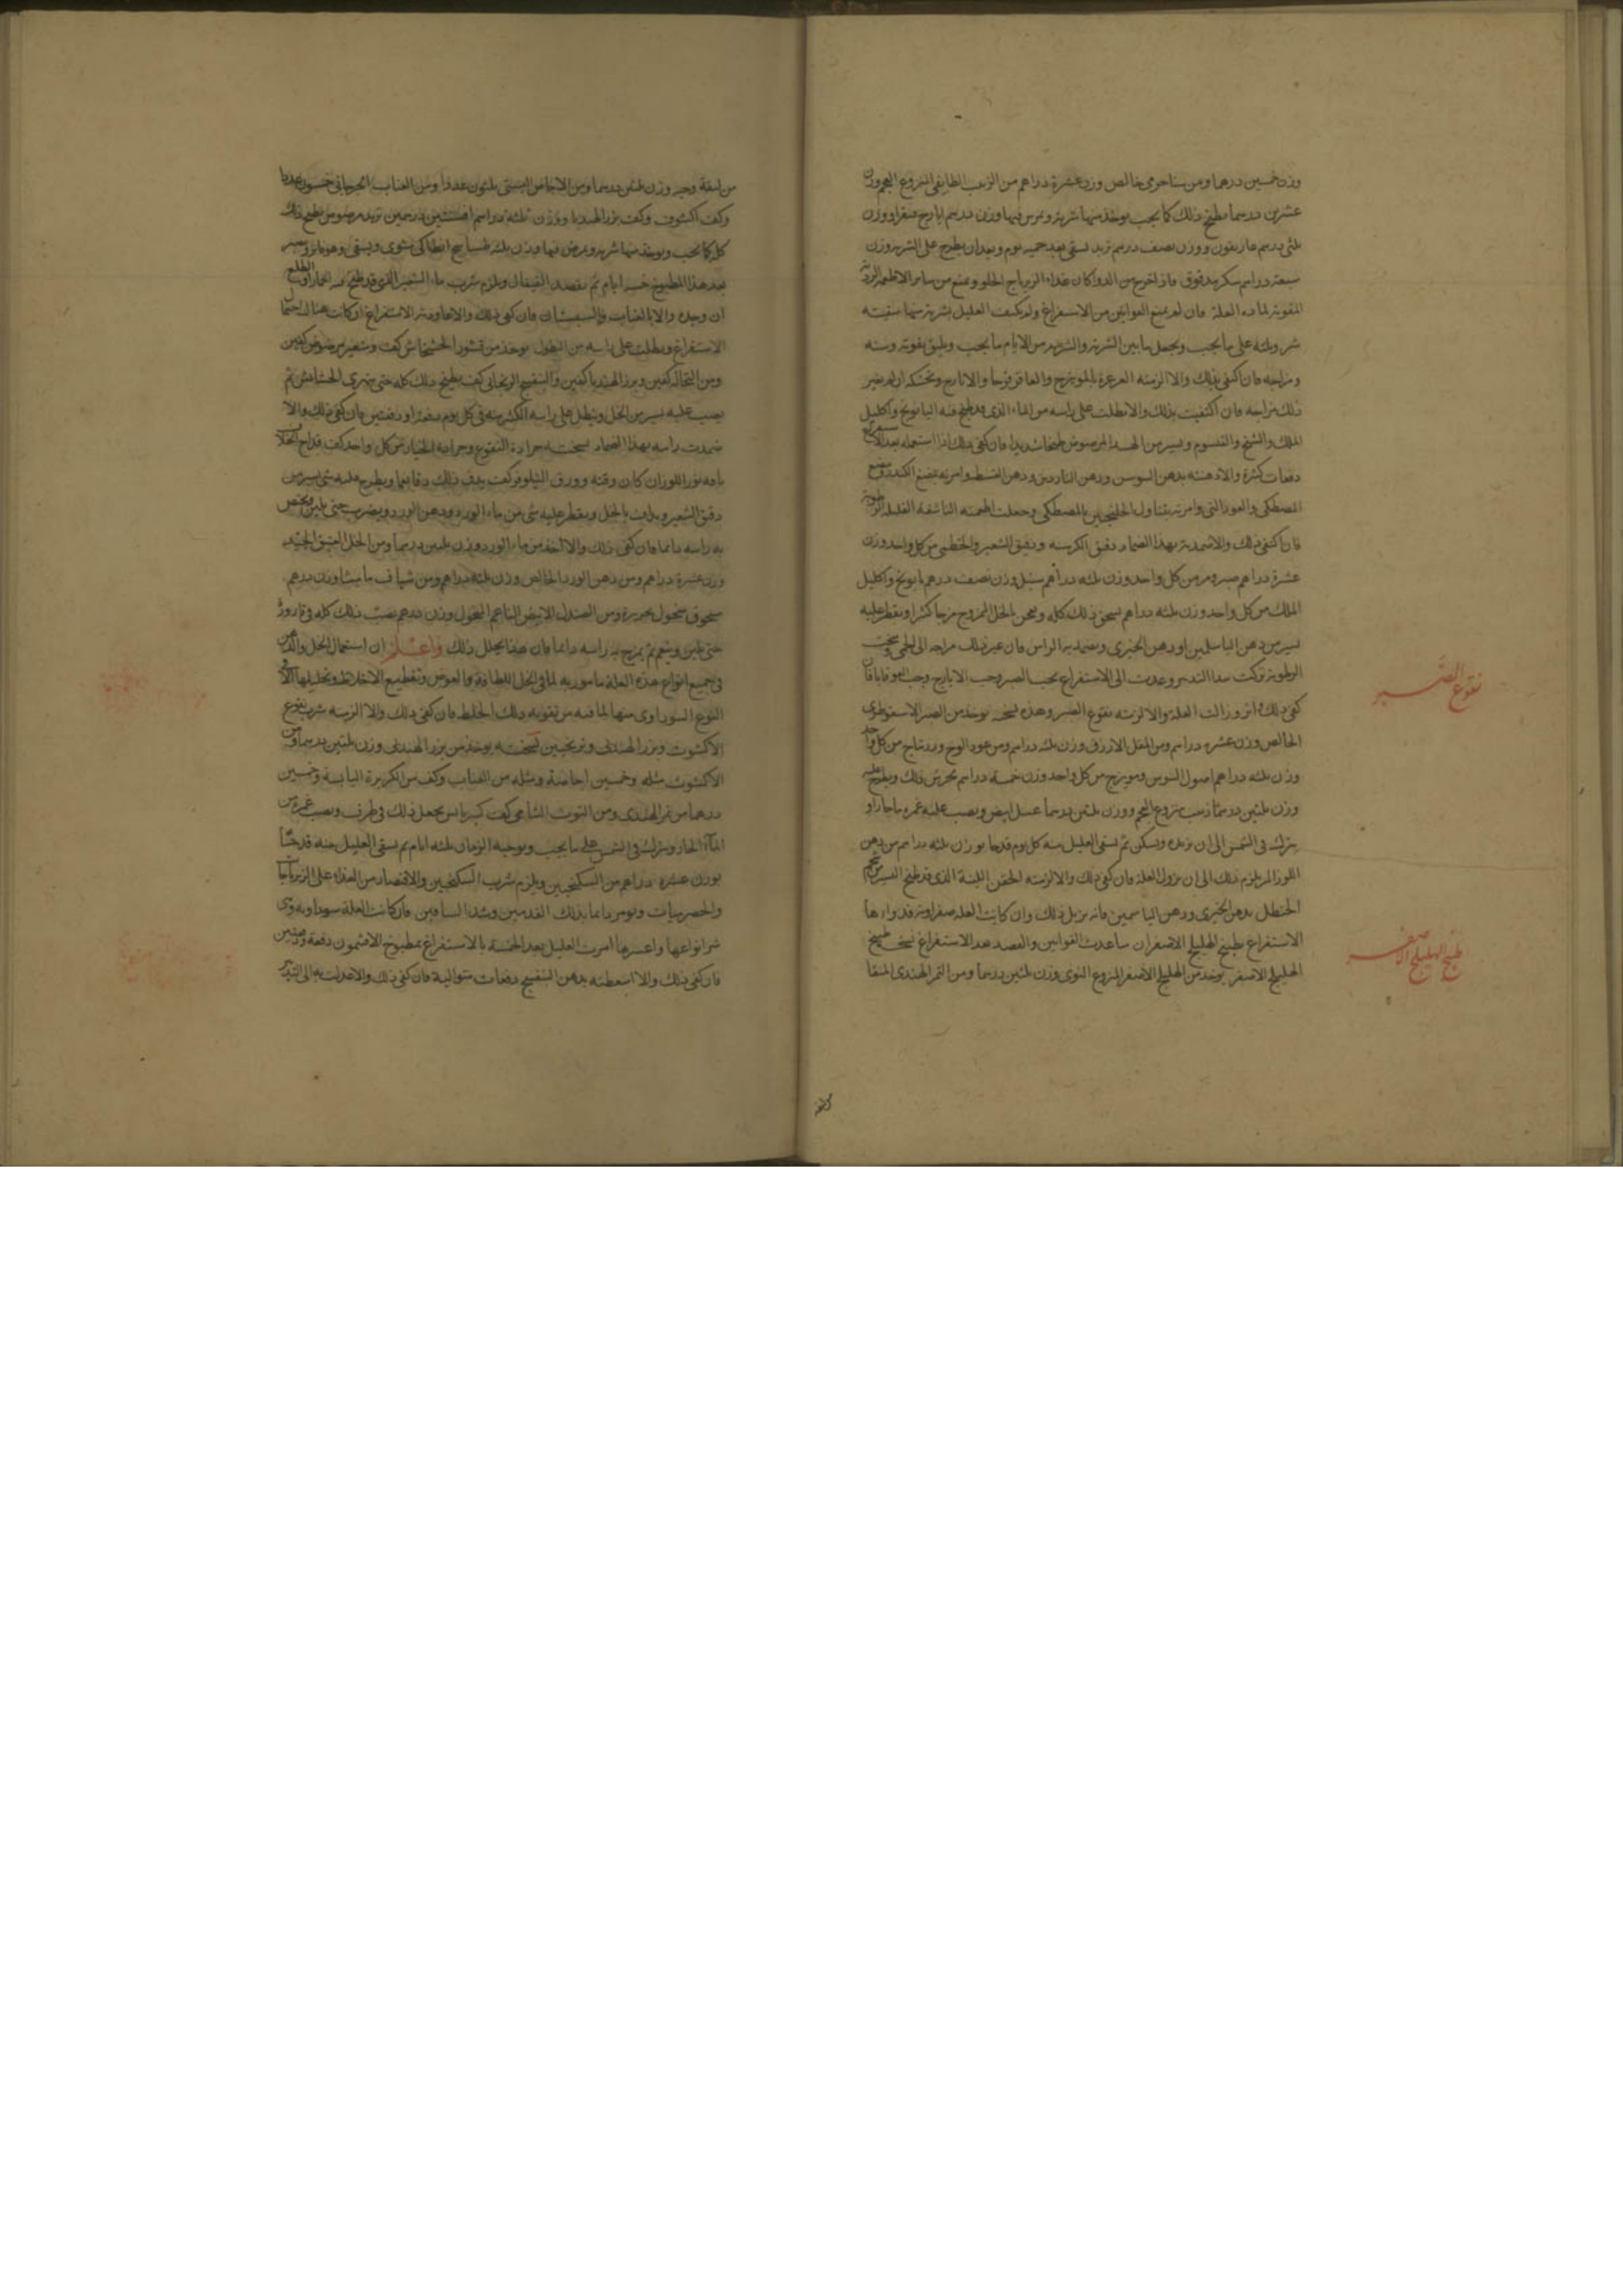 وزن خمسين درهما ومن سنا حرمي خالص وزن عشرة دراهم من الزبيب الطايفي المنزوع العجم وزن
عشرين درهما يطبخ ذلك كما يجب يوخذ منها شربة ويمرس فيها وزن درهم ايارج فيقرا ووزن
ثلثي درهم غاريقون ووزن نصف درهم تربد يسقى بعد حميه يوم وبعد ان يطرح على الشربه وزن
سبعة دراهم سكر مدقوق فاذا خرج من الدوا كان غذاء الزيرباج الحلو ويمنع من ساير الاطعمه الرديه
المقوية لماده العلة فان لم يمنع القوانين من الاستفراغ ولم يكف العليل بشربة منها سقيته
شربة على ما يجب ويجعل ما بين الشربة والشربه من الايام ما يجب ويليق بقوته وسنه
ومزاجه فان كفى بذلك والا الزمته الغرغرة بالمويزج والعاقر قرحا والايارج
ذلك مزاجه فان اكتفيت بذلك والا نطلت على راسه من الماء الذي قد طبخ فيه البابونج واكليل
الملك والشيح والقيسوم ويسير من فان كفى ذلك اذا استعمله
دفعات كثيرة والا دهنته بدهن السوسن ودهن الناردين ودهن القسط وامرته بمضغ الكندر ومضغ
المصطكي والعود الني وامرته بتناول الجلنجبين بالمصطكي وجعلت اطعمته الناشفة القليلة الرطوبة
فان اكتفى بذلك والا ضمدته بهذا الضماد دقيق الكرسنه ودقيق الشعير والخطمي من كل واحد وزن
عشرة دراهم صبر ومر من كل واحد وزن ثلثه دراهم سنبل وزن نصف درهم بابونج واكليل
الملك من كل واحد وزن ثلثه دراهم يسحق ذلك كله ويعجن بالخل الممزوج مزجا كثيرا ويقطر عليه
يسير من دهن الياسمين او دهن الخيري ويضمد به الراس فان غير ذلك مزاجه الى
الرطوبة تركت هذا التدبير وعدت الى الاستفراغ بحب الصبر وحب الايارج وحب القوقايا فان
كفى ذلك وزالت العلة والا لزمته نقوع الصبر وهذه نسخته يوخذ من الصبر الاسقوطري
الخالص وزن عشره دراهم ومن المقل الازرق وزن ثلثه دراهم ومن عود الوج من كل واحد
وزن ثلثه دراهم اصول السوس ومويزج من كل واحد وزن خمسة دراهم يجرش ذلك ويطرح عليه
وزن ثلثين درهما زبيب منزوع العجم ووزن ثلثين درهما عسل ابيض ويصب عليه غمره ما حارا و
يترك في الشمس الى ان يزبد ويسكن ثم يسقى العليل منه كل يوم قدحا بوزن ثلثه دراهم من دهن
اللوز المر يلزم ذلك الى ان يزول العلة فان كفى ذلك والا لزمته الحقن اللينة الذي قد طبخ فيه شحم
الحنظل بدهن الخيري ودهن الياسمين فانه يزيل ذلك وان كانت العلة صفراوية فدواؤها
الاستفراغ بطبيخ الهليلج الاصفر ان ساعدت القوانين والفصد بعد الاستفراغ نسخة طبيخ
الهليلج الاصفر يوخذ من الهليلج الاصفر المنزوع النوى وزن ثلثين درهما ومن التمر الهندي المنقا
نقوع الصبر
طبيخ الهليلج الاصفر
من ليفه وحبه وزن ثلثين درهما ومن الاجاص البستي ثلثون عددا ومن العناب الجرجاني خمسون عددا
وكف اكشوث وكف بزر الهندبا ووزن ثلثة دراهم افسنتين ودرهمين تربد مرضوض يطبخ ذلك
كله كما يجب ويوخذ منها شربه ويمرس فيها وزن ثلثه انطاكي مشوي ويسقى وهو فاتر ويصبر
بعد هذا المطبوخ خمسه ايام ثم يفصد القيفال ويلزم شرب ماء الشعير الذي قد طبخ فيه
ان وجده والا بالعناب والسبستان فان كفى ذلك والا عاودته الاستفراغ ان كانت هناك
الاستفراغ ونطلت على راسه من النطول يوخذ من قشور الخشخاش كف وشعير مرضوض كفين
ومن النخاله كفين وبزر الهندبا كفين والبنفسج الريحاني كف يطبخ ذلك كله حتى يتهرى الخشخاش ثم
يصب عليه يسير من الخل وينطل على راسه اكثر منه في كل يوم دفعة او دفعتين فان كفى ذلك والا
ضمدت راسه بهذا الضماد نسخته جرادة القرع وجرادة الخيار من كل واحد كف قداح الخلاف
باقه نور اللوز ان كان وقته وورق النيلوفر كف يدق ذلك دقا ناعما ويطرح عليه شي يسير من
دقيق الشعير ويداف بالخل ويقطر عليه شي من ماء الورد ودهن الورد ويضرب حتى يلين ويخبص
به راسه دايما فان كفى ذلك والا اتخذ من ماء الورد وزن ثلثين درهما ومن الخل العتيق الجيد
وزن عشرة دراهم ومن دهن الورد الخالص وزن ثلثه دراهم ومن شياف ماميثا وزن درهم
مسحوق منخول بحريرة ومن الصندل الابيض الناعم المنخول وزن درهم يصب ذلك كله في قارورة
حتى يلين وينعم ثم يمرخ به راسه دايما فان هذا يحلل ذلك واعلم ان استعمال الخل والدهن
في جميع انواع هذه العلة مامور به لما في الخل اللطافة والغوص وتقطيع الاخلاط وتحليلها الا في
النوع السوداوي منها لما فيه من تقويه ذلك الخلط فان كفى ذلك والا الزمته شرب نقوع
الاكشوث وبزر الهندبا وترنجبين نسخته يوخذ من بزر الهندبا وزن ثلثين درهما ومن
الاكشوث مثله وخمسين اجاصة ومثله من العناب وكف من الكزبرة اليابسة وخمسين
درهما من تمر الهندي ومن التوت الشامي كف كبير يابس يجعل ذلك في ظرف ويصب غمره من
الماء الحار ويترك في الشمس على ما يجب ويوجبه الزمان ثلثه ايام ثم يسقى العليل منه قدحا
بوزن عشره دراهم من السكنجبين ويلزم شرب السكنجبين والاقتصار من الغذاء على الزيرباجات
والحصرميات ويومر دايما بدلك القدمين وشد الساقين فان كانت العلة سوداويه وهي
شر انواعها واعسرها امرت العليل بعد الحمية بالاستفراغ بمطبوخ الافتيمون دفعة ودفعتين
فان كفى ذلك والا اسعطته بدهن البنفسج دفعات متوالية فان كفى ذلك والا عدلت به الى التدبير